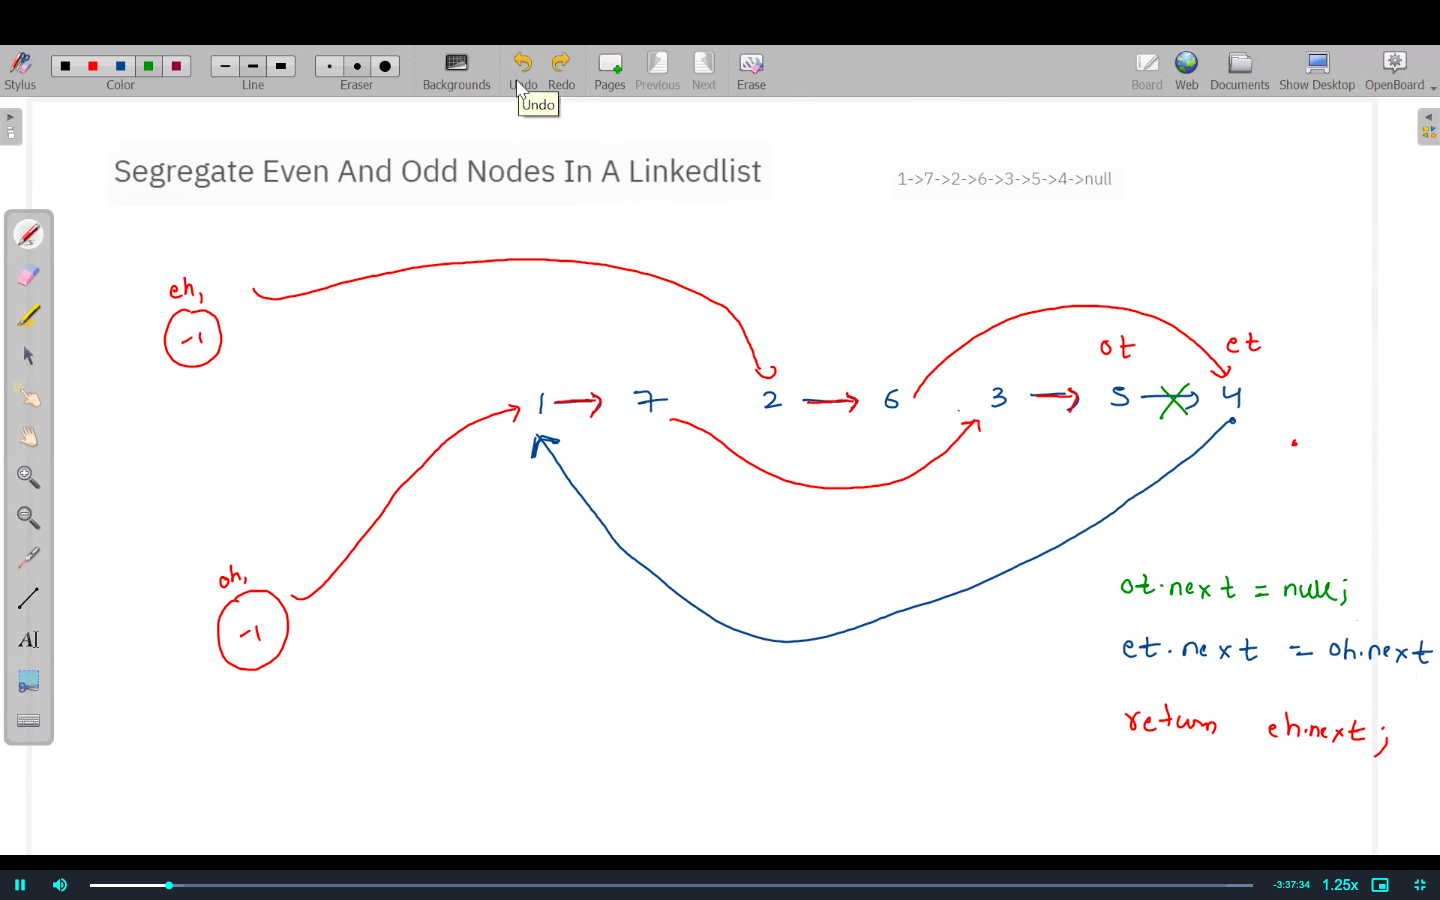 Stylus Color Line Eraser Backgrounds Undo Redo Pages Previous Next Erase Board Web Documents Show Desktop OpenBoard
Undo
Segregate Even And Odd Nodes In A Linkedlist
1->7->2->6->3->5->4->null
eh,
-1
ot et
1 7 2 6 3 5 4
oh,
-1
ot.next = null;
et.next = oh.next
return eh.next;
AI
-3:37:34 1.25x